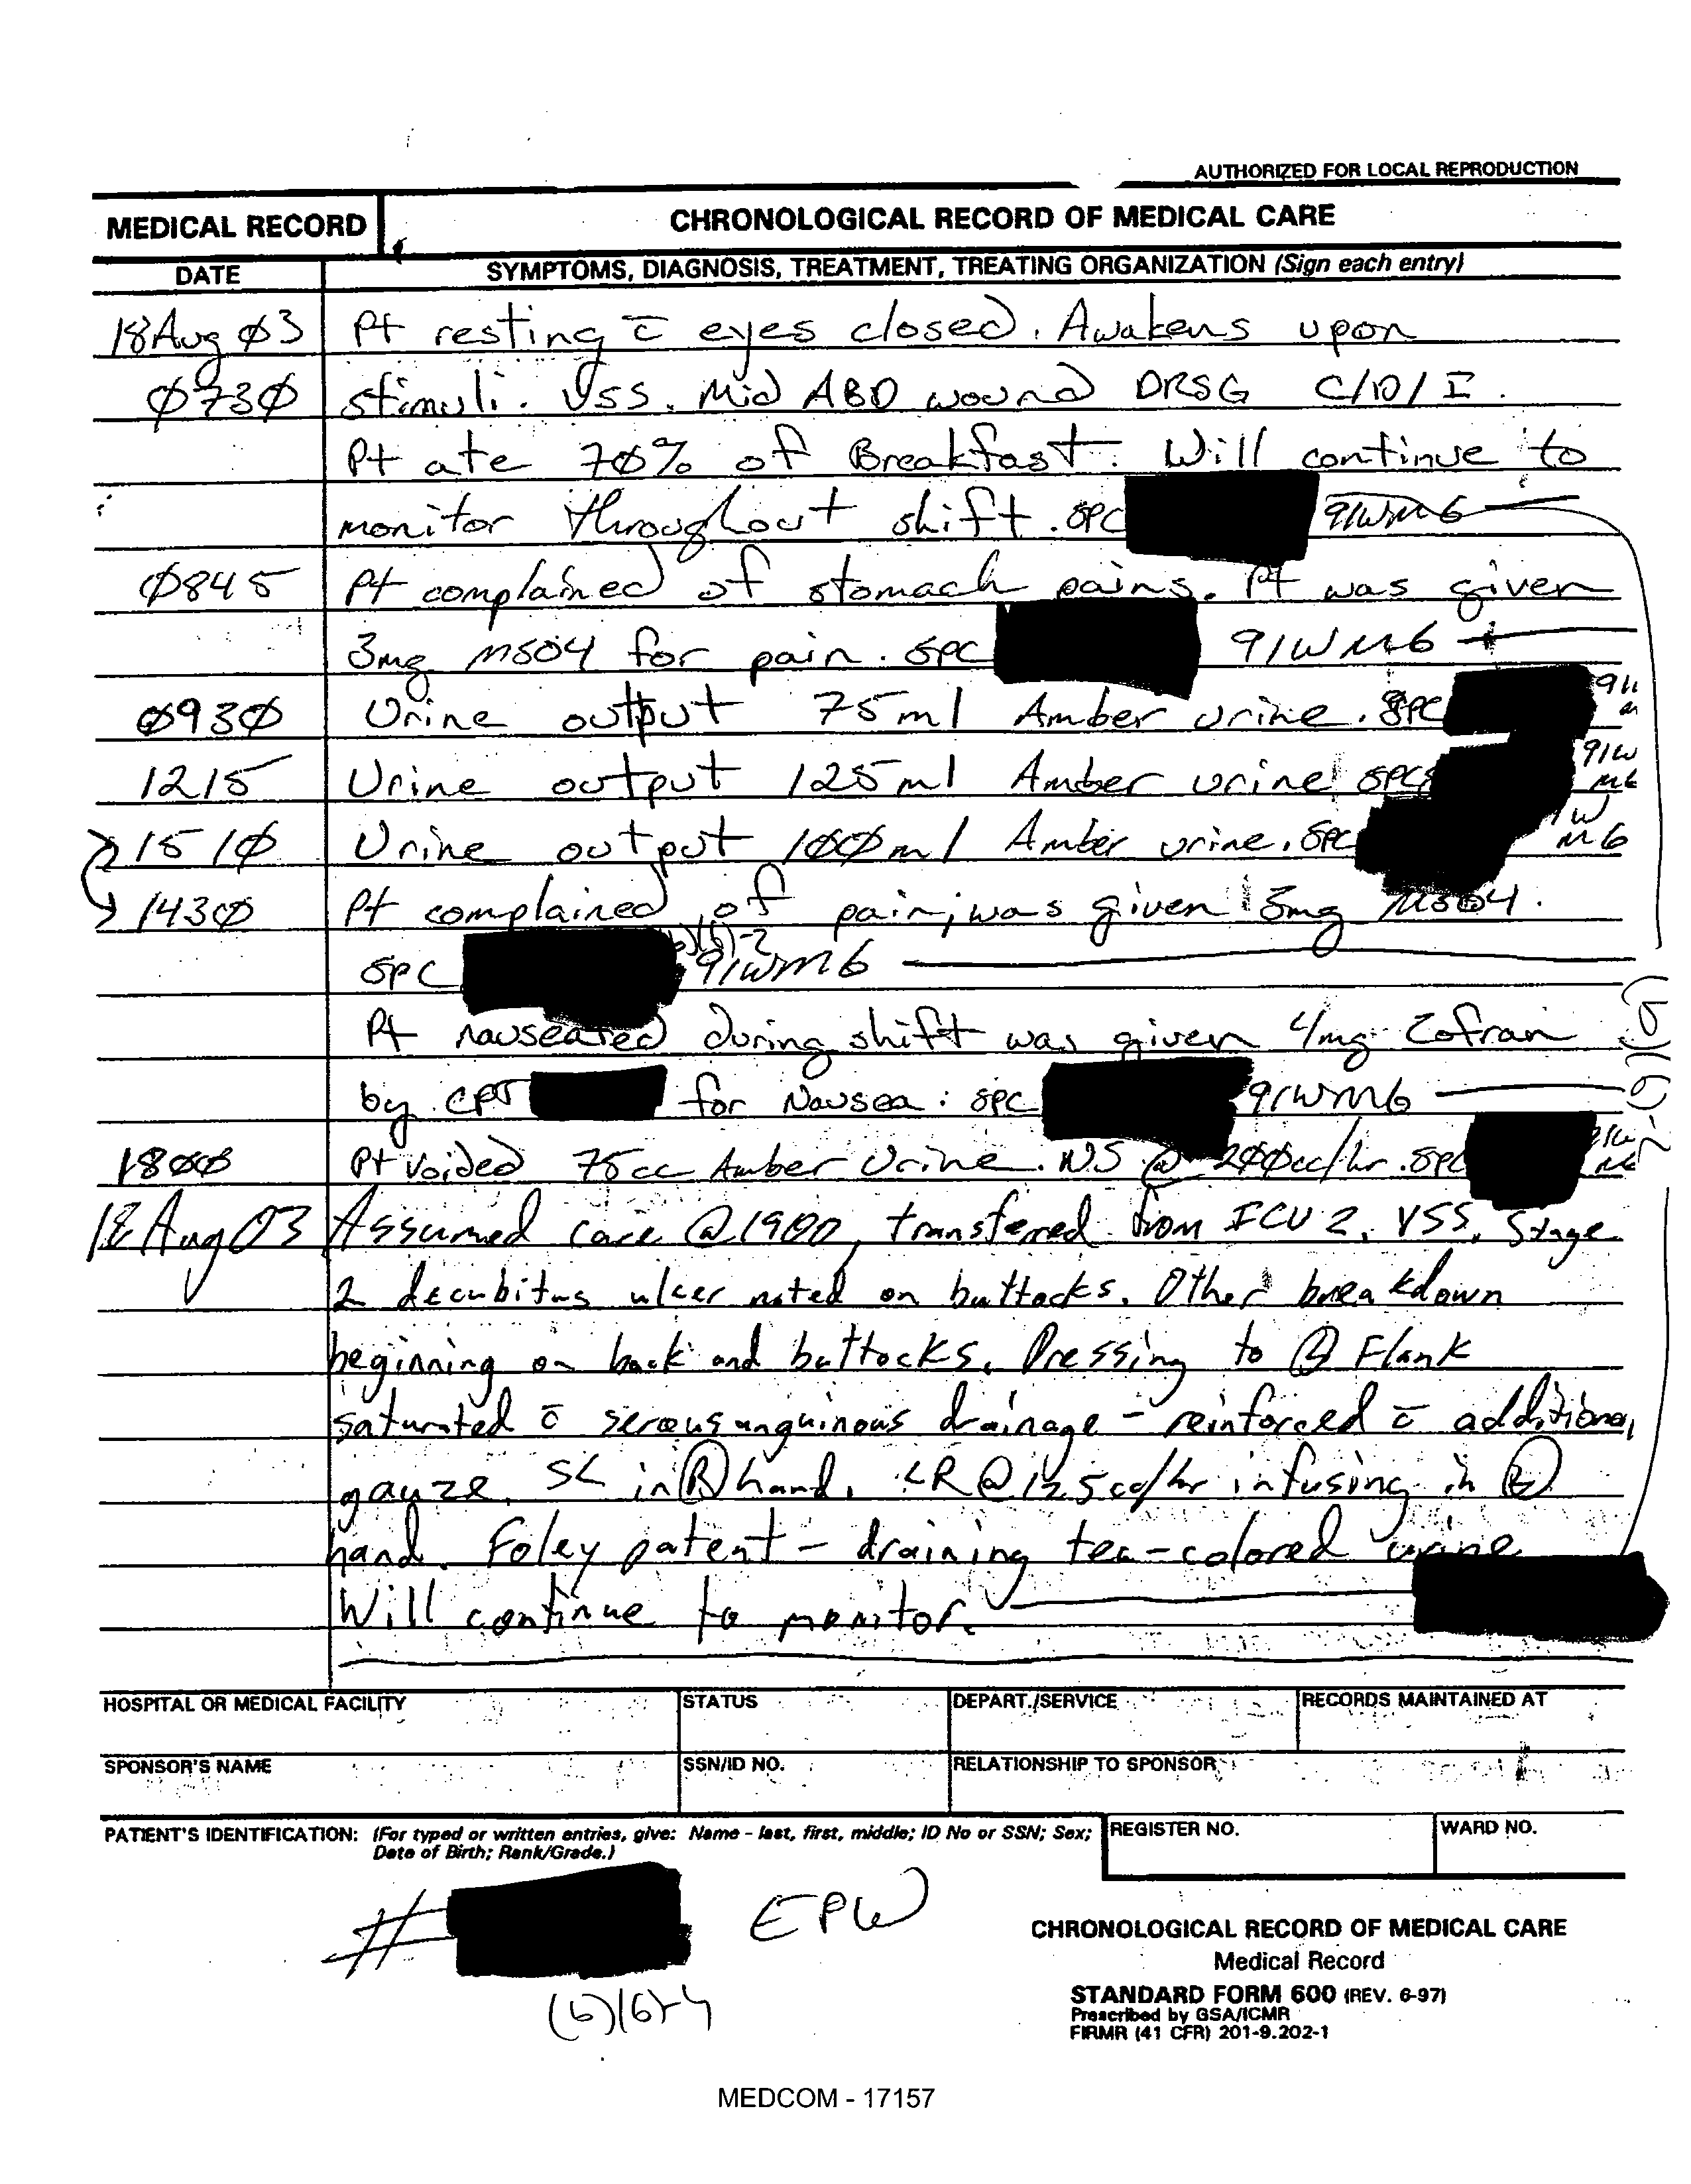 AUTHORIZED FOR LOCAL REPRODUCTION
MEDICAL RECORD
CHRONOLOGICAL RECORD OF MEDICAL CARE
DATE
SYMPTOMS, DIAGNOSIS, TREATMENT, TREATING ORGANIZATION (Sign each entry)
18 Aug Ø3 Pt resting c̄ eyes closed. Awakens upon
Ø73Ø stimuli. VSS. Mid ABD wound DRSG C/D/I.
Pt ate 7Ø% of Breakfast. Will continue to
monitor throughout shift. SPC 91WM6
Ø845 Pt complained of stomach pains. Pt was given
3mg MSO4 for pain. SPC 91WM6
Ø93Ø Urine output 75ml Amber urine. SPC
1215 Urine output 125ml Amber urine SPC 91W M6
151Ø Urine output 1ØØml Amber urine. SPC W M6
143Ø Pt complained of pain; was given 3mg MSO4.
SPC 91WM6
Pt nauseated during shift was given 4mg Zofran
by CPT for Nausea. SPC 91WM6
18ØØ Pt voided 75cc Amber Urine. NS @ 2ØØcc/hr. SPC
18 Aug 03 Assumed care @ 1900, transferred from ICU 2. VSS. Stage
2 decubitus ulcer noted on buttocks. Other breakdown
beginning on back and buttocks. Dressing to Flank
saturated c̄ serousanguinous drainage - reinforced c̄ additional
gauze. SL in Ⓡ hand. LR @ 125cc/hr infusing in
hand. Foley patent - draining tea-colored urine
Will continue to monitor.
HOSPITAL OR MEDICAL FACILITY
STATUS
DEPART./SERVICE
RECORDS MAINTAINED AT
SPONSOR'S NAME
SSN/ID NO.
RELATIONSHIP TO SPONSOR
PATIENT'S IDENTIFICATION: (For typed or written entries, give: Name - last, first, middle; ID No or SSN; Sex;
Date of Birth; Rank/Grade.)
REGISTER NO.
WARD NO.
# EPW
(b)(6)-4
CHRONOLOGICAL RECORD OF MEDICAL CARE
Medical Record
STANDARD FORM 600 (REV. 6-97)
Prescribed by GSA/ICMR
FIRMR (41 CFR) 201-9.202-1
MEDCOM - 17157